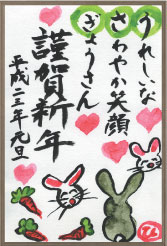 うれしいな
さわやか笑顔
ぎょうさん
謹賀新年
平成二三年元旦